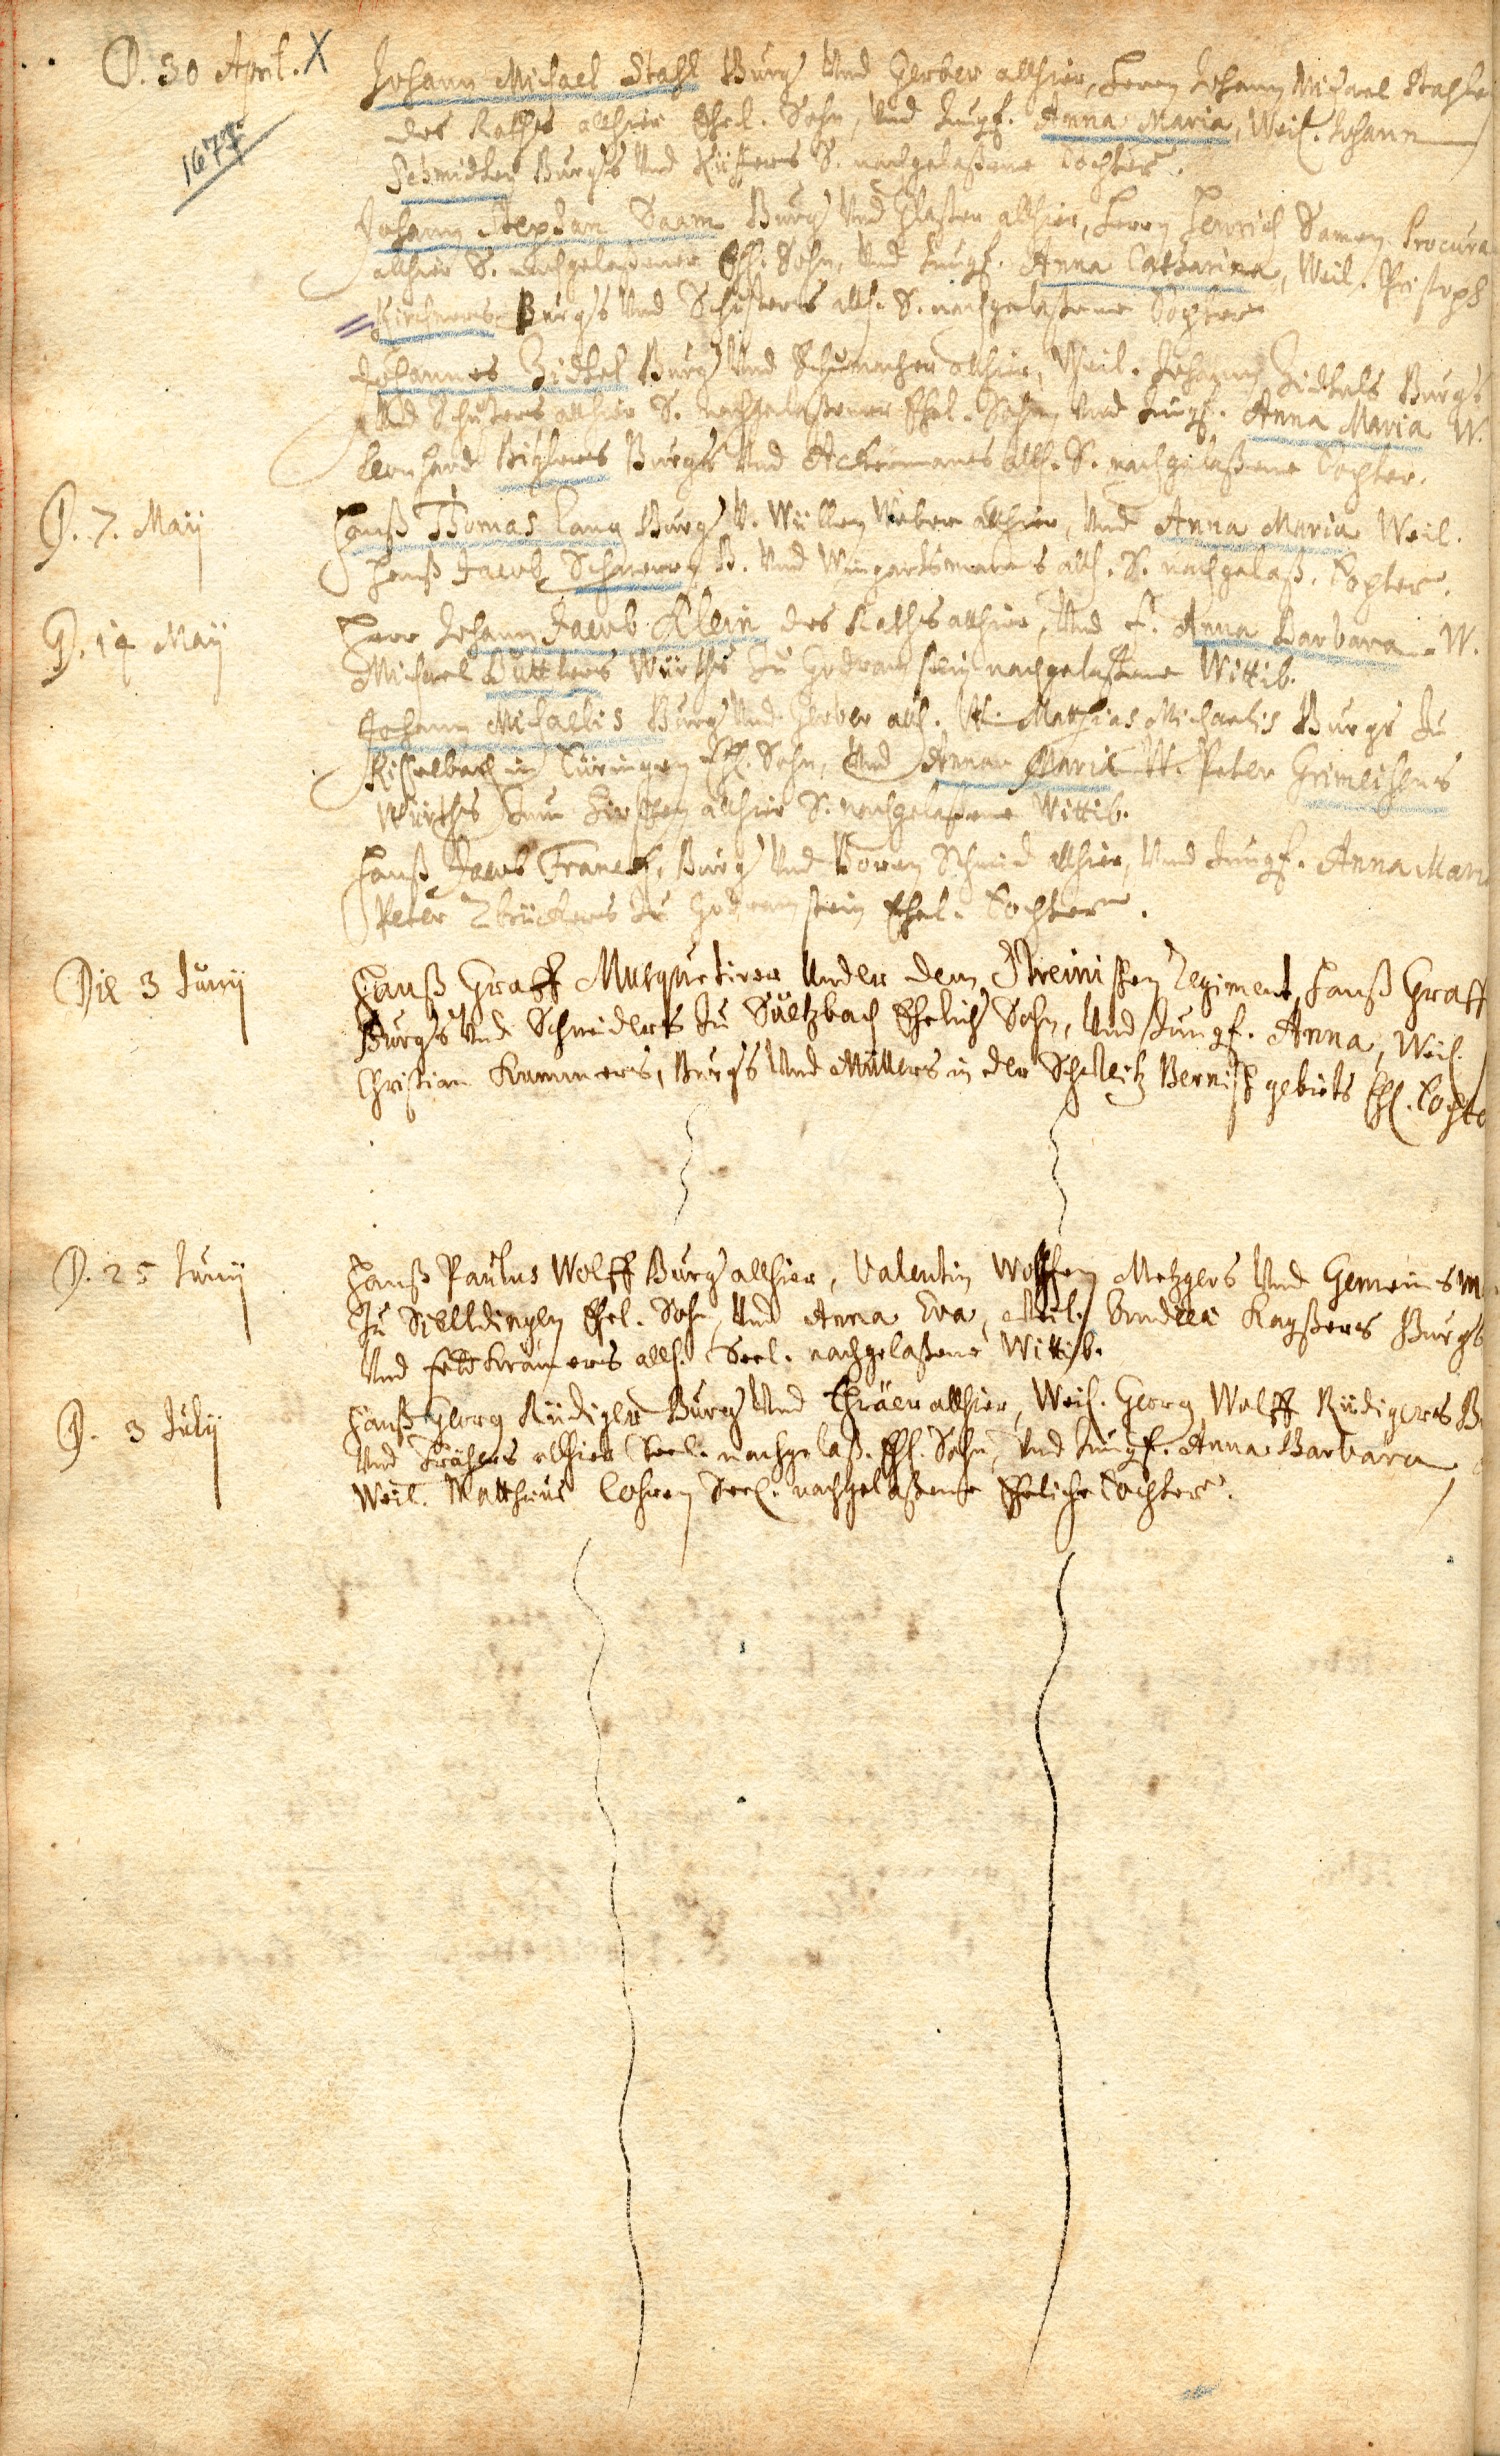 D. 30 April. X
1677
Johann Michael Stahl Burg. Und Gerber allhier, Herrn Johann Michael Stahls
des Raths allhier Ehel. Sohn, Und Jungf. Anna Maria, Weil. Johann
Schmidten Burgs Und Küffers S. nachgelaßene Tochter.
Johann Stephan Saam Burg. Und Glaßer allhier, Herrn Henrich Samen Procura
allhier S. nachgelaßener Ehl. Sohn, Und Jungf. Anna Catharina, Weil. Christoph
Kirchners Burgs Und Schusters allh. S. nachgelaßene Tochter
Johannes Zickel Burg. Und Schumacher allhier, Weil. Johann Zickels Burgs
Und Schusters allhier S. nachgelaßener Ehel. Sohn Und Jungf. Anna Maria W.
Bernhard Burgs Und Ackermanns allh. S. nachgelaßene Tochter.
D. 7. Maÿ
Hanß Thomas Lang Burg. U. Wüllen Weber allhier, Und Anna Maria Weil.
Hanß Jacob B. Und Wingartsmans allh. S. nachgelaß. Tochter.
D. 14 Maÿ
Herr Johann Jacob Klein des Raths allhier, Und F. Anna Barbara W.
Michael Würths Zu Godramstein nachgelaßene Wittib.
Johann Michaelis Burg. Und Gerber allh. W. Matthias Michaelis Burgs Zu
in Türingen Ehl. Sohn, Und Anna Maria W. Peter
Würths Zum Hirschen allhier S. nachgelaßene Wittib.
Hanß Jacob Franck, Burg. Und Schmid allhier, Und Jungf. Anna Mari
Peter Zu Godramstein Ehel. Tochter.
Die 3 Junÿ
Hanß Graff Musquetirer Under dem Regiment, Hanß Graff
Burgs Und Schneiders Zu Sultzbach Ehelich Sohn, Und Jungf. Anna, Weil.
Christian Kummers, Burgs Und Müllers in der Schweitz Bernisch gebiets Ehl. Tochte
D. 25 Junÿ
Hanß Paulus Wolff Burg. allhier, Valentin Wolffen Metzgers Und Gemeinsm
Zu Ehel. Sohn, Und Anna Eva, Weil. Andrea Burgs
Und allh. Seel. nachgelaßene Wittib.
D. 3 Julÿ
Hanß Georg Rüdiger Burg. Und allhier, Weil. Georg Wolff Rüdigers B
Und allhier Seel. nachgelaß. Ehl. Sohn, Und Jungf. Anna Barbara
Weil. Matthäus Seel. nachgelaßene Eheliche Tochter.